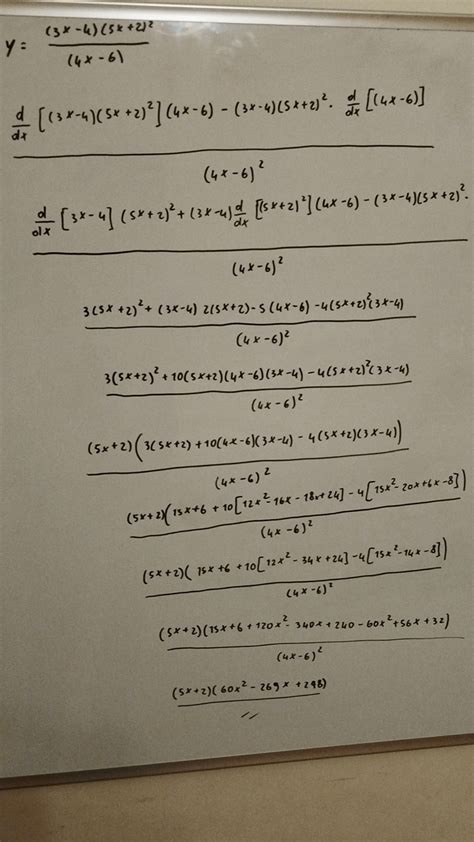 y = (3x-4)(5x+2)² / (4x-6)
d/dx [(3x-4)(5x+2)²](4x-6) - (3x-4)(5x+2)² · d/dx [(4x-6)] / (4x-6)²
d/dx [3x-4] (5x+2)² + (3x-4) d/dx [(5x+2)²](4x-6) - (3x-4)(5x+2)². / (4x-6)²
3(5x+2)² + (3x-4) 2(5x+2)·5(4x-6) - 4(5x+2)²(3x-4) / (4x-6)²
3(5x+2)² + 10(5x+2)(4x-6)(3x-4) - 4(5x+2)²(3x-4) / (4x-6)²
(5x+2)(3(5x+2) + 10(4x-6)(3x-4) - 4(5x+2)(3x-4)) / (4x-6)²
(5x+2)(15x+6 + 10[12x² - 16x - 18x + 24] - 4[15x² - 20x + 6x - 8]) / (4x-6)²
(5x+2)(15x+6 + 10[12x² - 34x + 24] - 4[15x² - 14x - 8]) / (4x-6)²
(5x+2)(15x+6 + 120x² - 340x + 240 - 60x² + 56x + 32) / (4x-6)²
(5x+2)(60x² - 269x + 298) / "